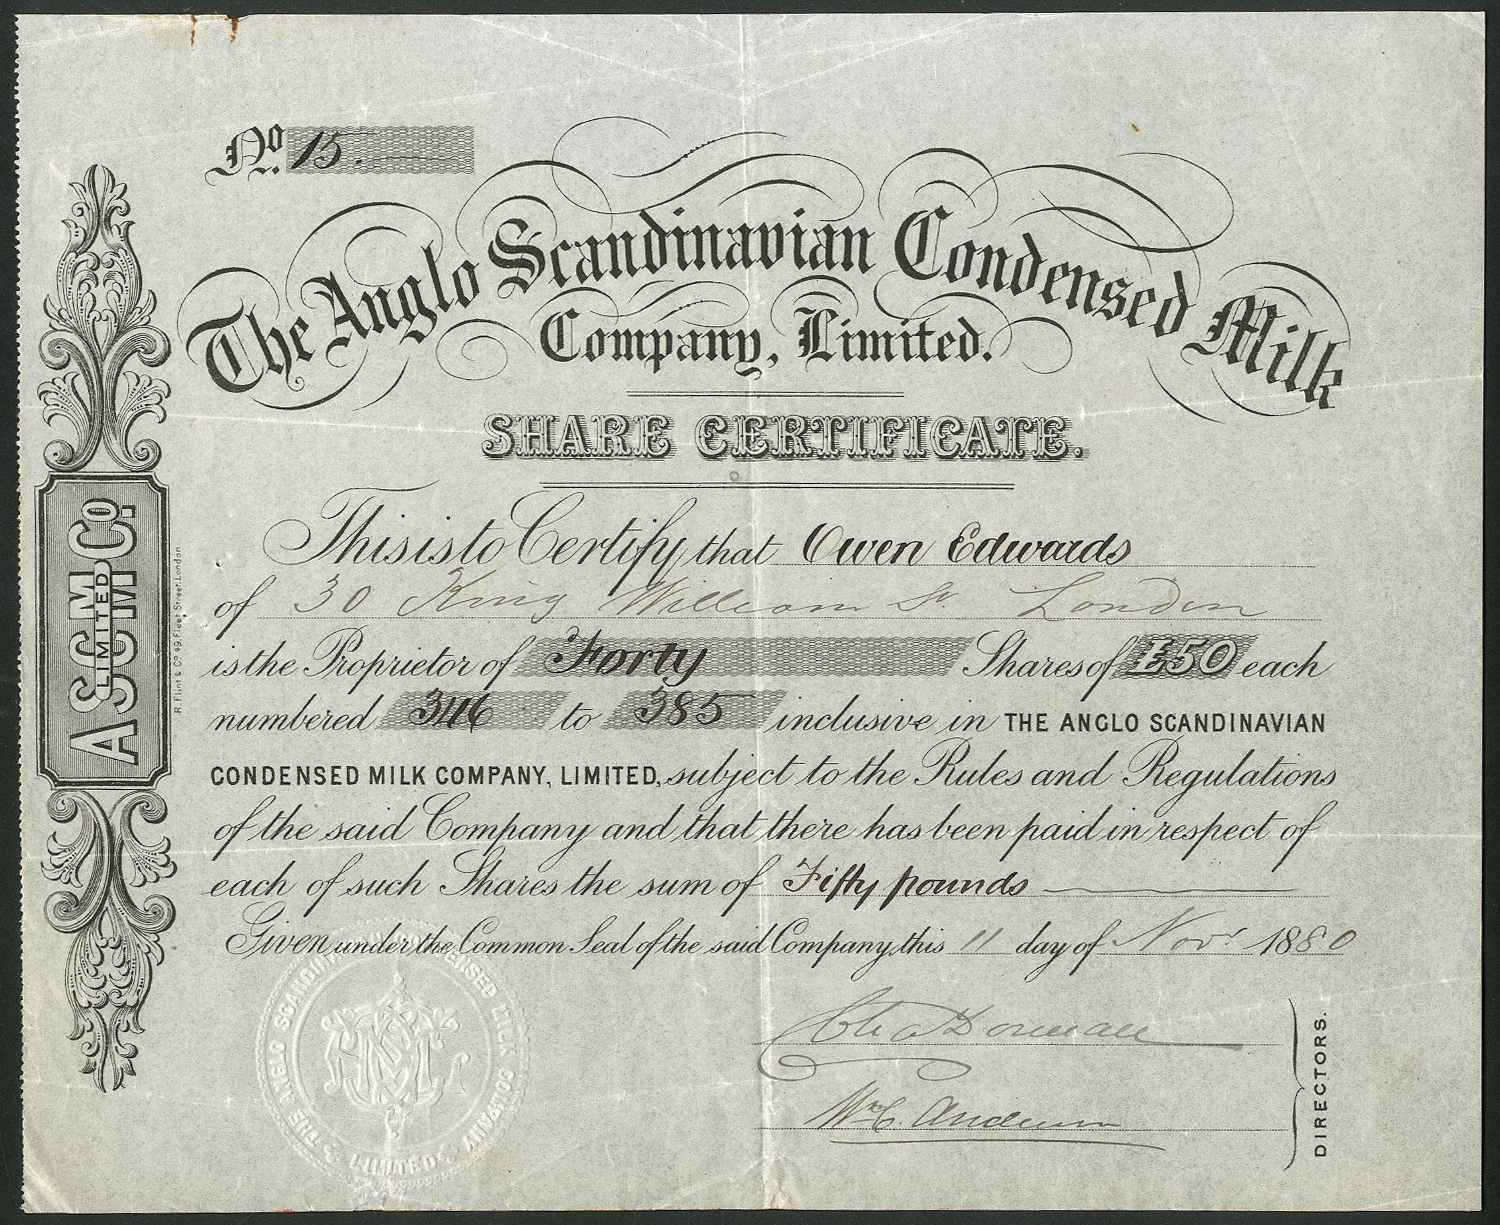 No. 15.
The Anglo Scandinavian Condensed Milk
Company, Limited.
SHARE CERTIFICATE.
This is to Certify that Owen Edwards
of 30 King William St. London
is the Proprietor of Forty Shares of £50 each
numbered 346 to 385 inclusive in THE ANGLO SCANDINAVIAN
CONDENSED MILK COMPANY, LIMITED, subject to the Rules and Regulations
of the said Company and that there has been paid in respect of
each of such Shares the sum of Fifty pounds
Given under the Common Seal of the said Company this 11 day of Novr 1880
Chas Dorman
Wm C. Anderson
DIRECTORS.
A S C M Co.
LIMITED
R. Flint & Co 49, Fleet Street, London
THE ANGLO SCANDINAVIAN CONDENSED MILK COMPANY
LIMITED